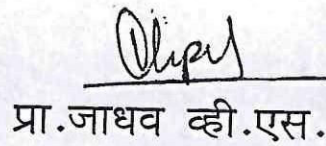 प्रा.जाधव व्ही.एस.